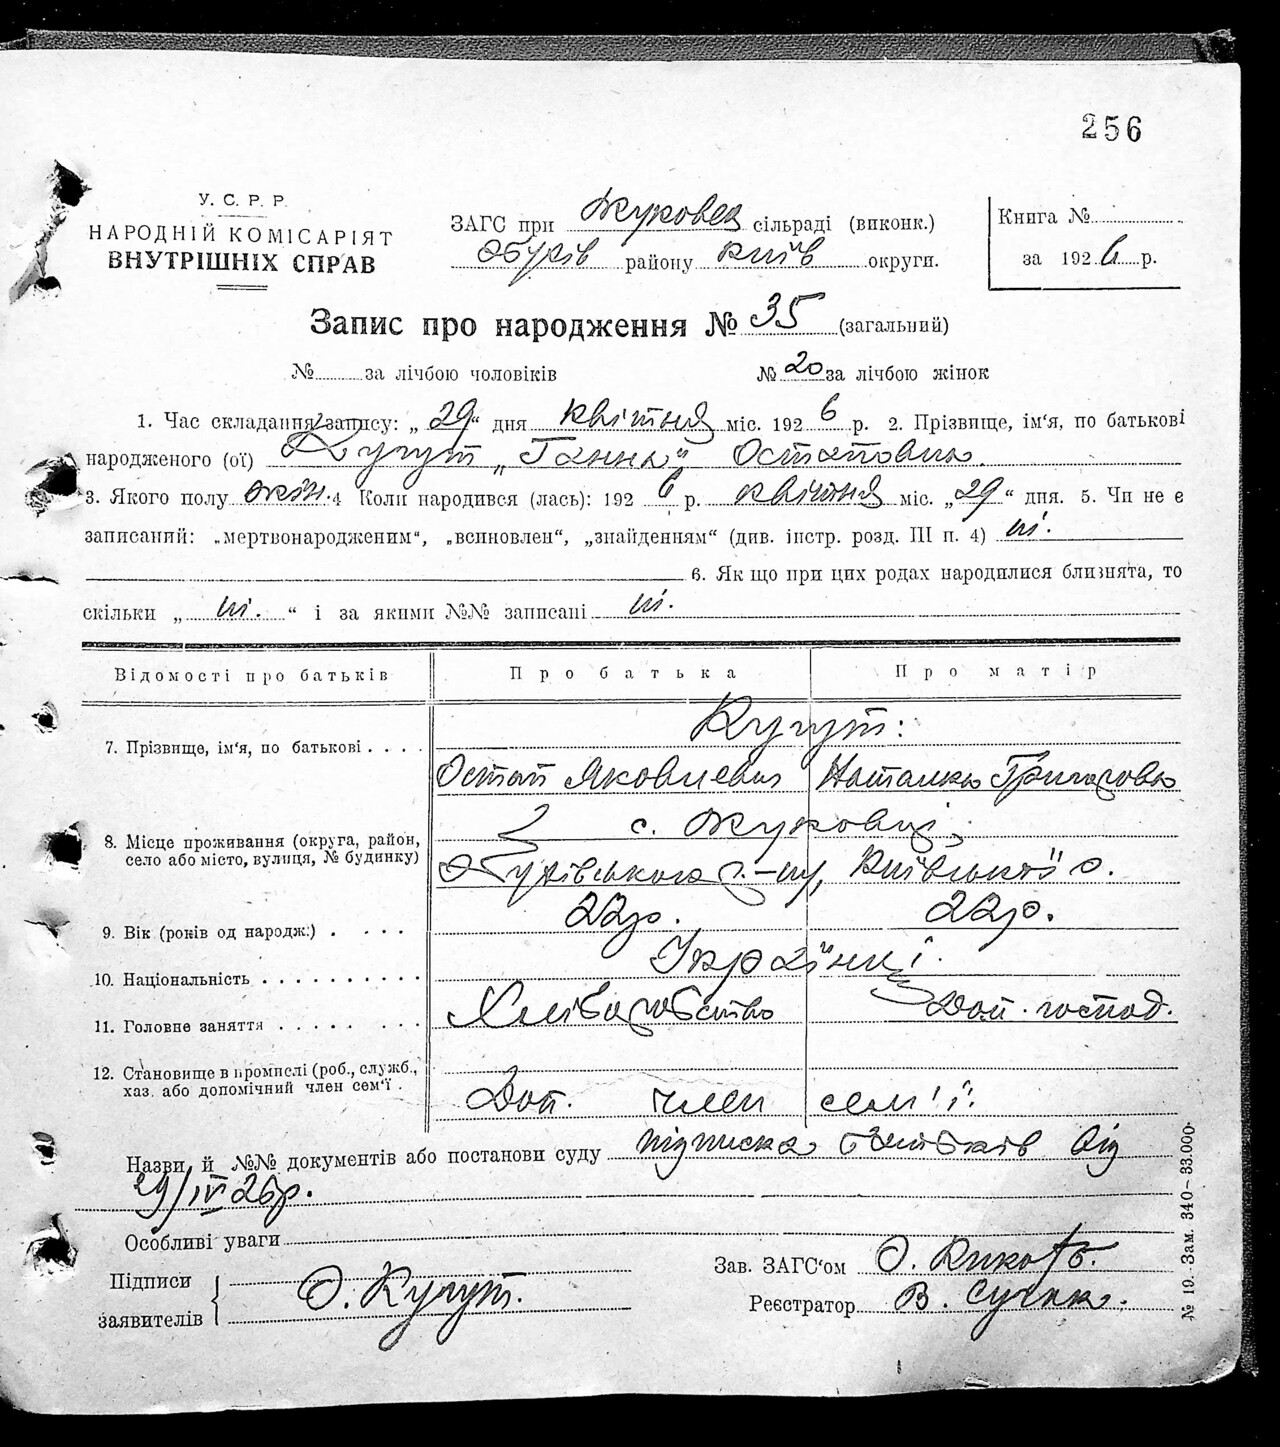 256
У. С. Р. Р.
НАРОДНІЙ КОМІСАРІЯТ
ВНУТРІШНІХ СПРАВ
ЗАГС при Жуковец сільраді (виконк.)
Обухів району Київ округи.
Книга №
за 1926 р.
Запис про народження № 35 (загальний)
№ за лічбою чоловіків № 20 за лічбою жінок
1. Час складання запису: „ 29 “ дня квітня міс. 1926 р. 2. Прізвище, ім'я, по батькові
народженого (ої) Кугут „Ганна“ Остаповна
3. Якого полу жін. 4 Коли народився (лась): 1926 р. квітня міс. „29“ дня. 5. Чи не є
записаний: „мертвонародженим“, „всиновлен“, „знайденням“ (див. інстр. розд. III п. 4) ні.
6. Як що при цих родах народилися близнята, то
скільки „ ні. “ і за якими №№ записані ні.
Відомості про батьків Про батька Про матір
7. Прізвище, ім'я, по батькові . . . . Кугут:
Остап Яковлевич Наталка Григоровна
8. Місце проживання (округа, район,
село або місто, вулиця, № будинку)
с. Жуковці,
Обухівського р-ну, Київської о.
9. Вік (років од народж.) . . . . 22 р. 22 р.
10. Національність . . . . . . . . . . Українці.
11. Головне заняття . . . . . . . . Хліборобство Дом. господ.
12. Становище в промислі (роб., служб.,
хаз. або допомічний член сем'ї .
Доп. член сем'ї.
Назви й №№ документів або постанови суду підписка батьків від
29/IV 26 р.
Особливі уваги
Підписи
заявителів
О. Кугут.
Зав. ЗАГС'ом О.
Реєстратор В.
№ 10. Зам. 340–33.000·